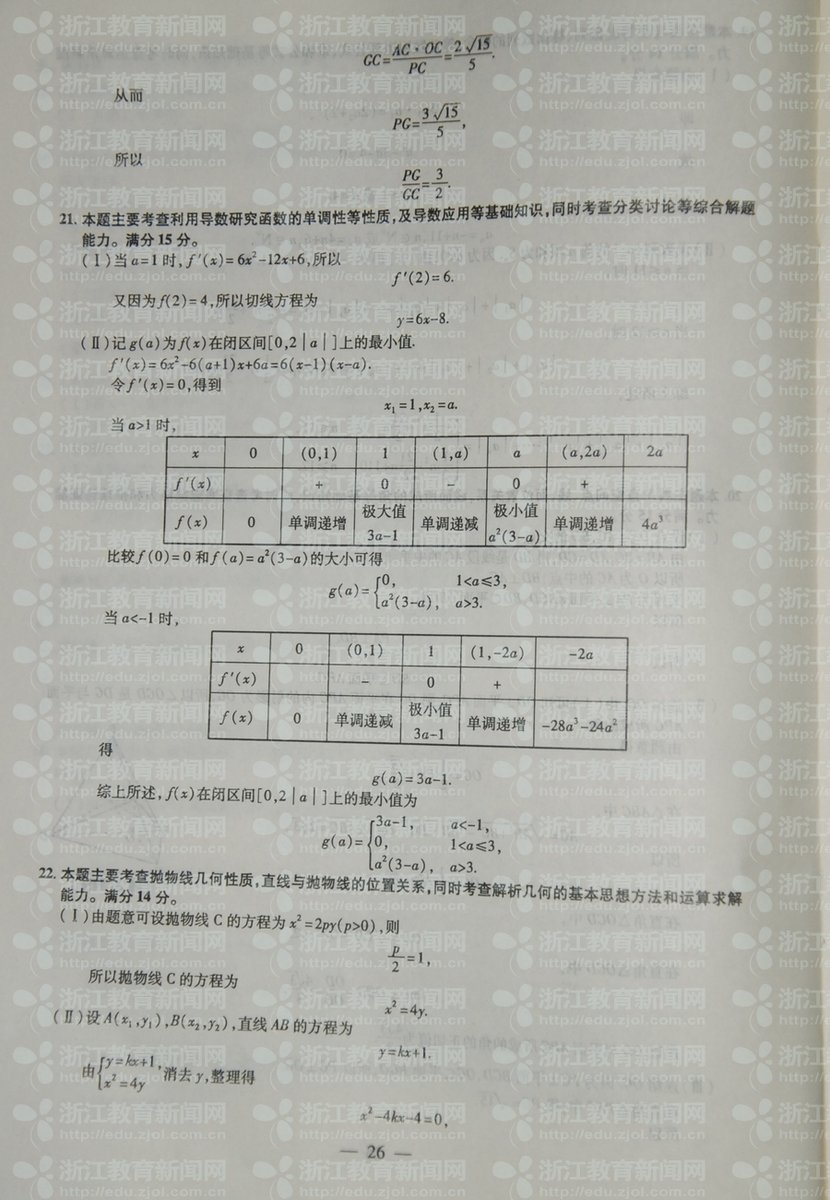 GC=AC·OC/PC=2√15/5.
从而
PG=3√15/5,
所以
PG/GC=3/2.
21. 本题主要考查利用导数研究函数的单调性等性质,及导数应用等基础知识,同时考查分类讨论等综合解题
能力。满分 15 分。
(Ⅰ)当 a=1 时,f′(x)=6x²-12x+6,所以
f′(2)=6.
又因为f(2)=4,所以切线方程为
y=6x-8.
(Ⅱ)记 g(a)为f(x)在闭区间[0,2|a|]上的最小值.
f′(x)=6x²-6(a+1)x+6a=6(x-1)(x-a).
令f′(x)=0,得到
x₁=1,x₂=a.
当 a>1 时,
x 0 (0,1) 1 (1,a) a (a,2a) 2a
f′(x) + 0 - 0 +
f(x) 0 单调递增 极大值 3a-1 单调递减 极小值 a²(3-a) 单调递增 4a³
比较f(0)=0 和f(a)=a²(3-a)的大小可得
g(a)={0, 1<a≤3,
a²(3-a), a>3.
当 a<-1 时,
x 0 (0,1) 1 (1,-2a) -2a
f′(x) - 0 +
f(x) 0 单调递减 极小值 3a-1 单调递增 -28a³-24a²
得
g(a)=3a-1.
综上所述,f(x)在闭区间[0,2|a|]上的最小值为
g(a)={3a-1, a<-1,
0, 1<a≤3,
a²(3-a), a>3.
22. 本题主要考查抛物线几何性质,直线与抛物线的位置关系,同时考查解析几何的基本思想方法和运算求解
能力。满分 14 分。
(Ⅰ)由题意可设抛物线 C 的方程为 x²=2py(p>0),则
p/2=1,
所以抛物线 C 的方程为
x²=4y.
(Ⅱ)设 A(x₁,y₁),B(x₂,y₂),直线 AB 的方程为
y=kx+1.
由{y=kx+1,
x²=4y 消去 y,整理得
x²-4kx-4=0,
— 26 —
浙江教育新闻网
http://edu.zjol.com.cn